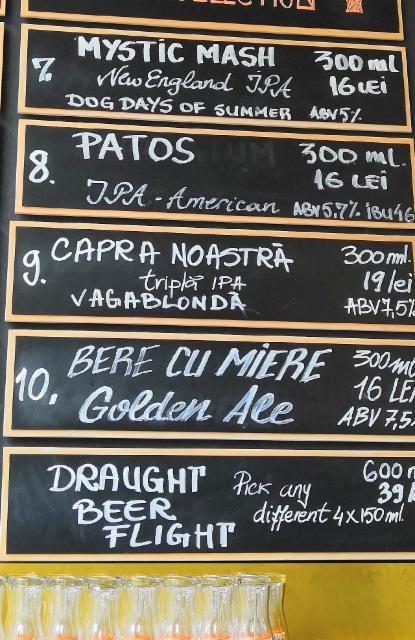 7. MYSTIC MASH 300 ml
New England IPA 16 LEi
DOG DAYS OF SUMMER ABV 5%
8. PATOS 300 mL.
16 LEI
IPA - American ABV 5.7% iBU 46
9. CAPRA NOASTRĂ 300 ml.
triplă IPA 19 lei
VAGABLONDĂ ABV 7,5%
10. BERE CU MIERE 300 ml
Golden Ale 16 LEI
ABV 7,5
DRAUGHT 600
BEER Pick any 39
FLIGHT different 4 x 150 ml.